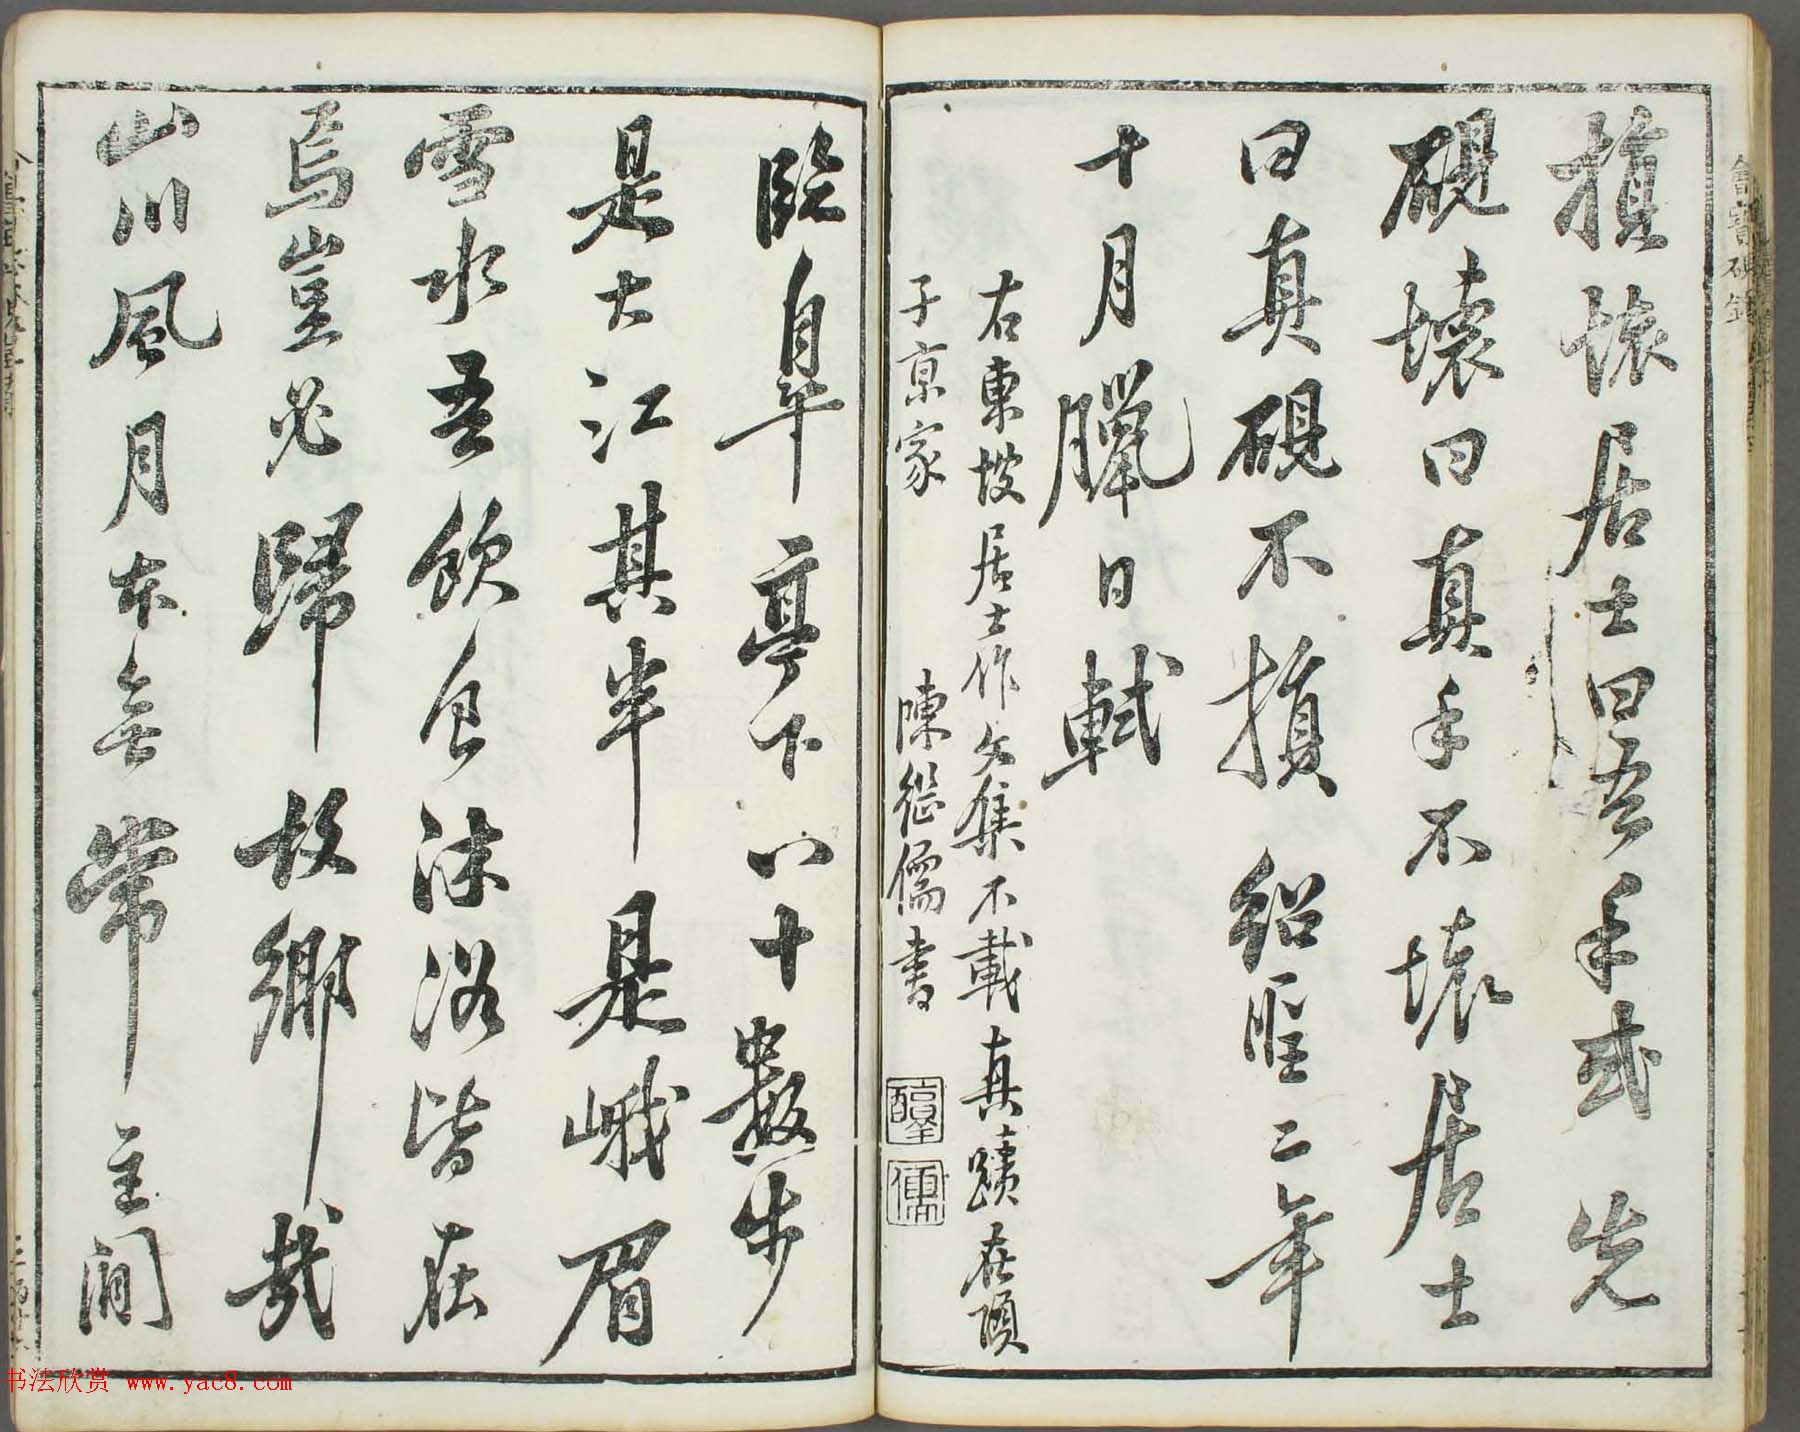 損壞居士曰吾手或先
硯壞曰真手不壞居士
曰真硯不損 紹聖二年
十月臘日軾
右東坡居士作文集不載真蹟在項
子京家 陳繼儒書
臨皐亭下八十數步
是大江其半是峨眉
雪水吾飲食沐浴皆在
焉豈必歸故鄉哉
山川風月本無常主閒
书法欣赏 www.yac8.com